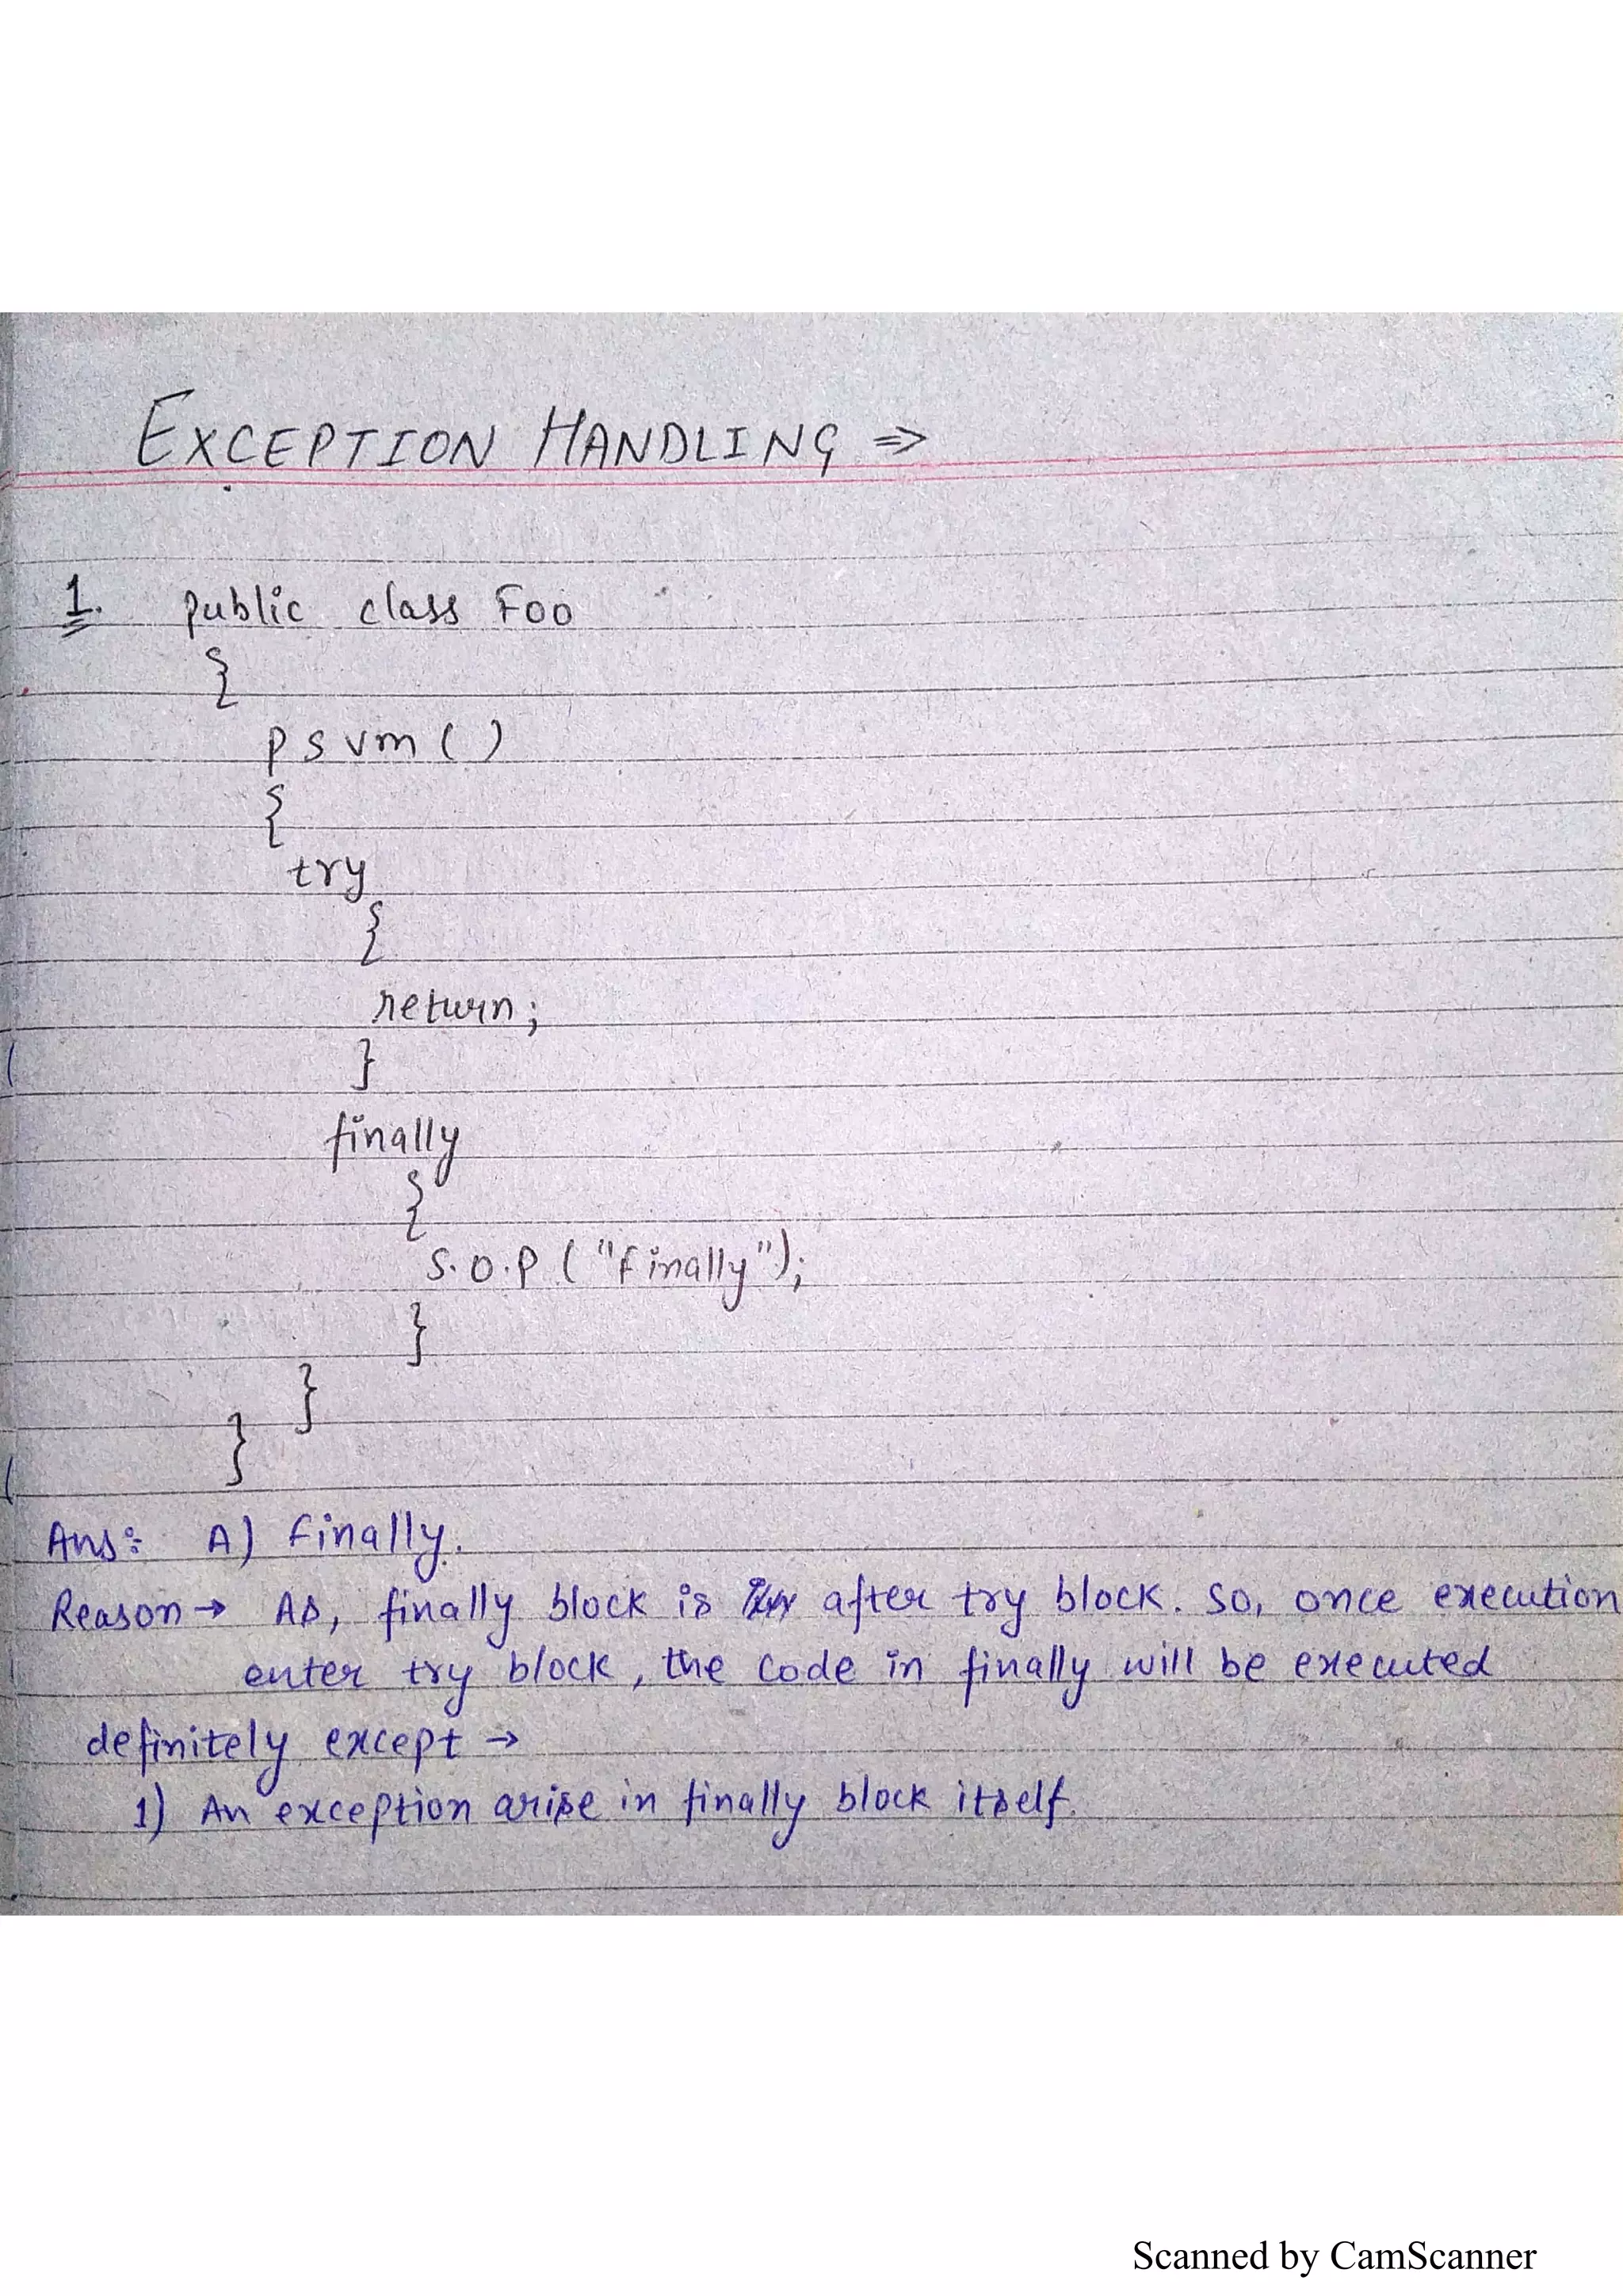 EXCEPTION HANDLING ⇒
1. public class Foo
{
psvm()
{
try
{
return;
}
finally
{
S.O.P ("Finally");
}
}
}
Ans: A) Finally.
Reason → As, finally block is after try block. So, once execution
enter try block, the code in finally will be executed
definitely except →
1) An exception arise in finally block itself.
Scanned by CamScanner